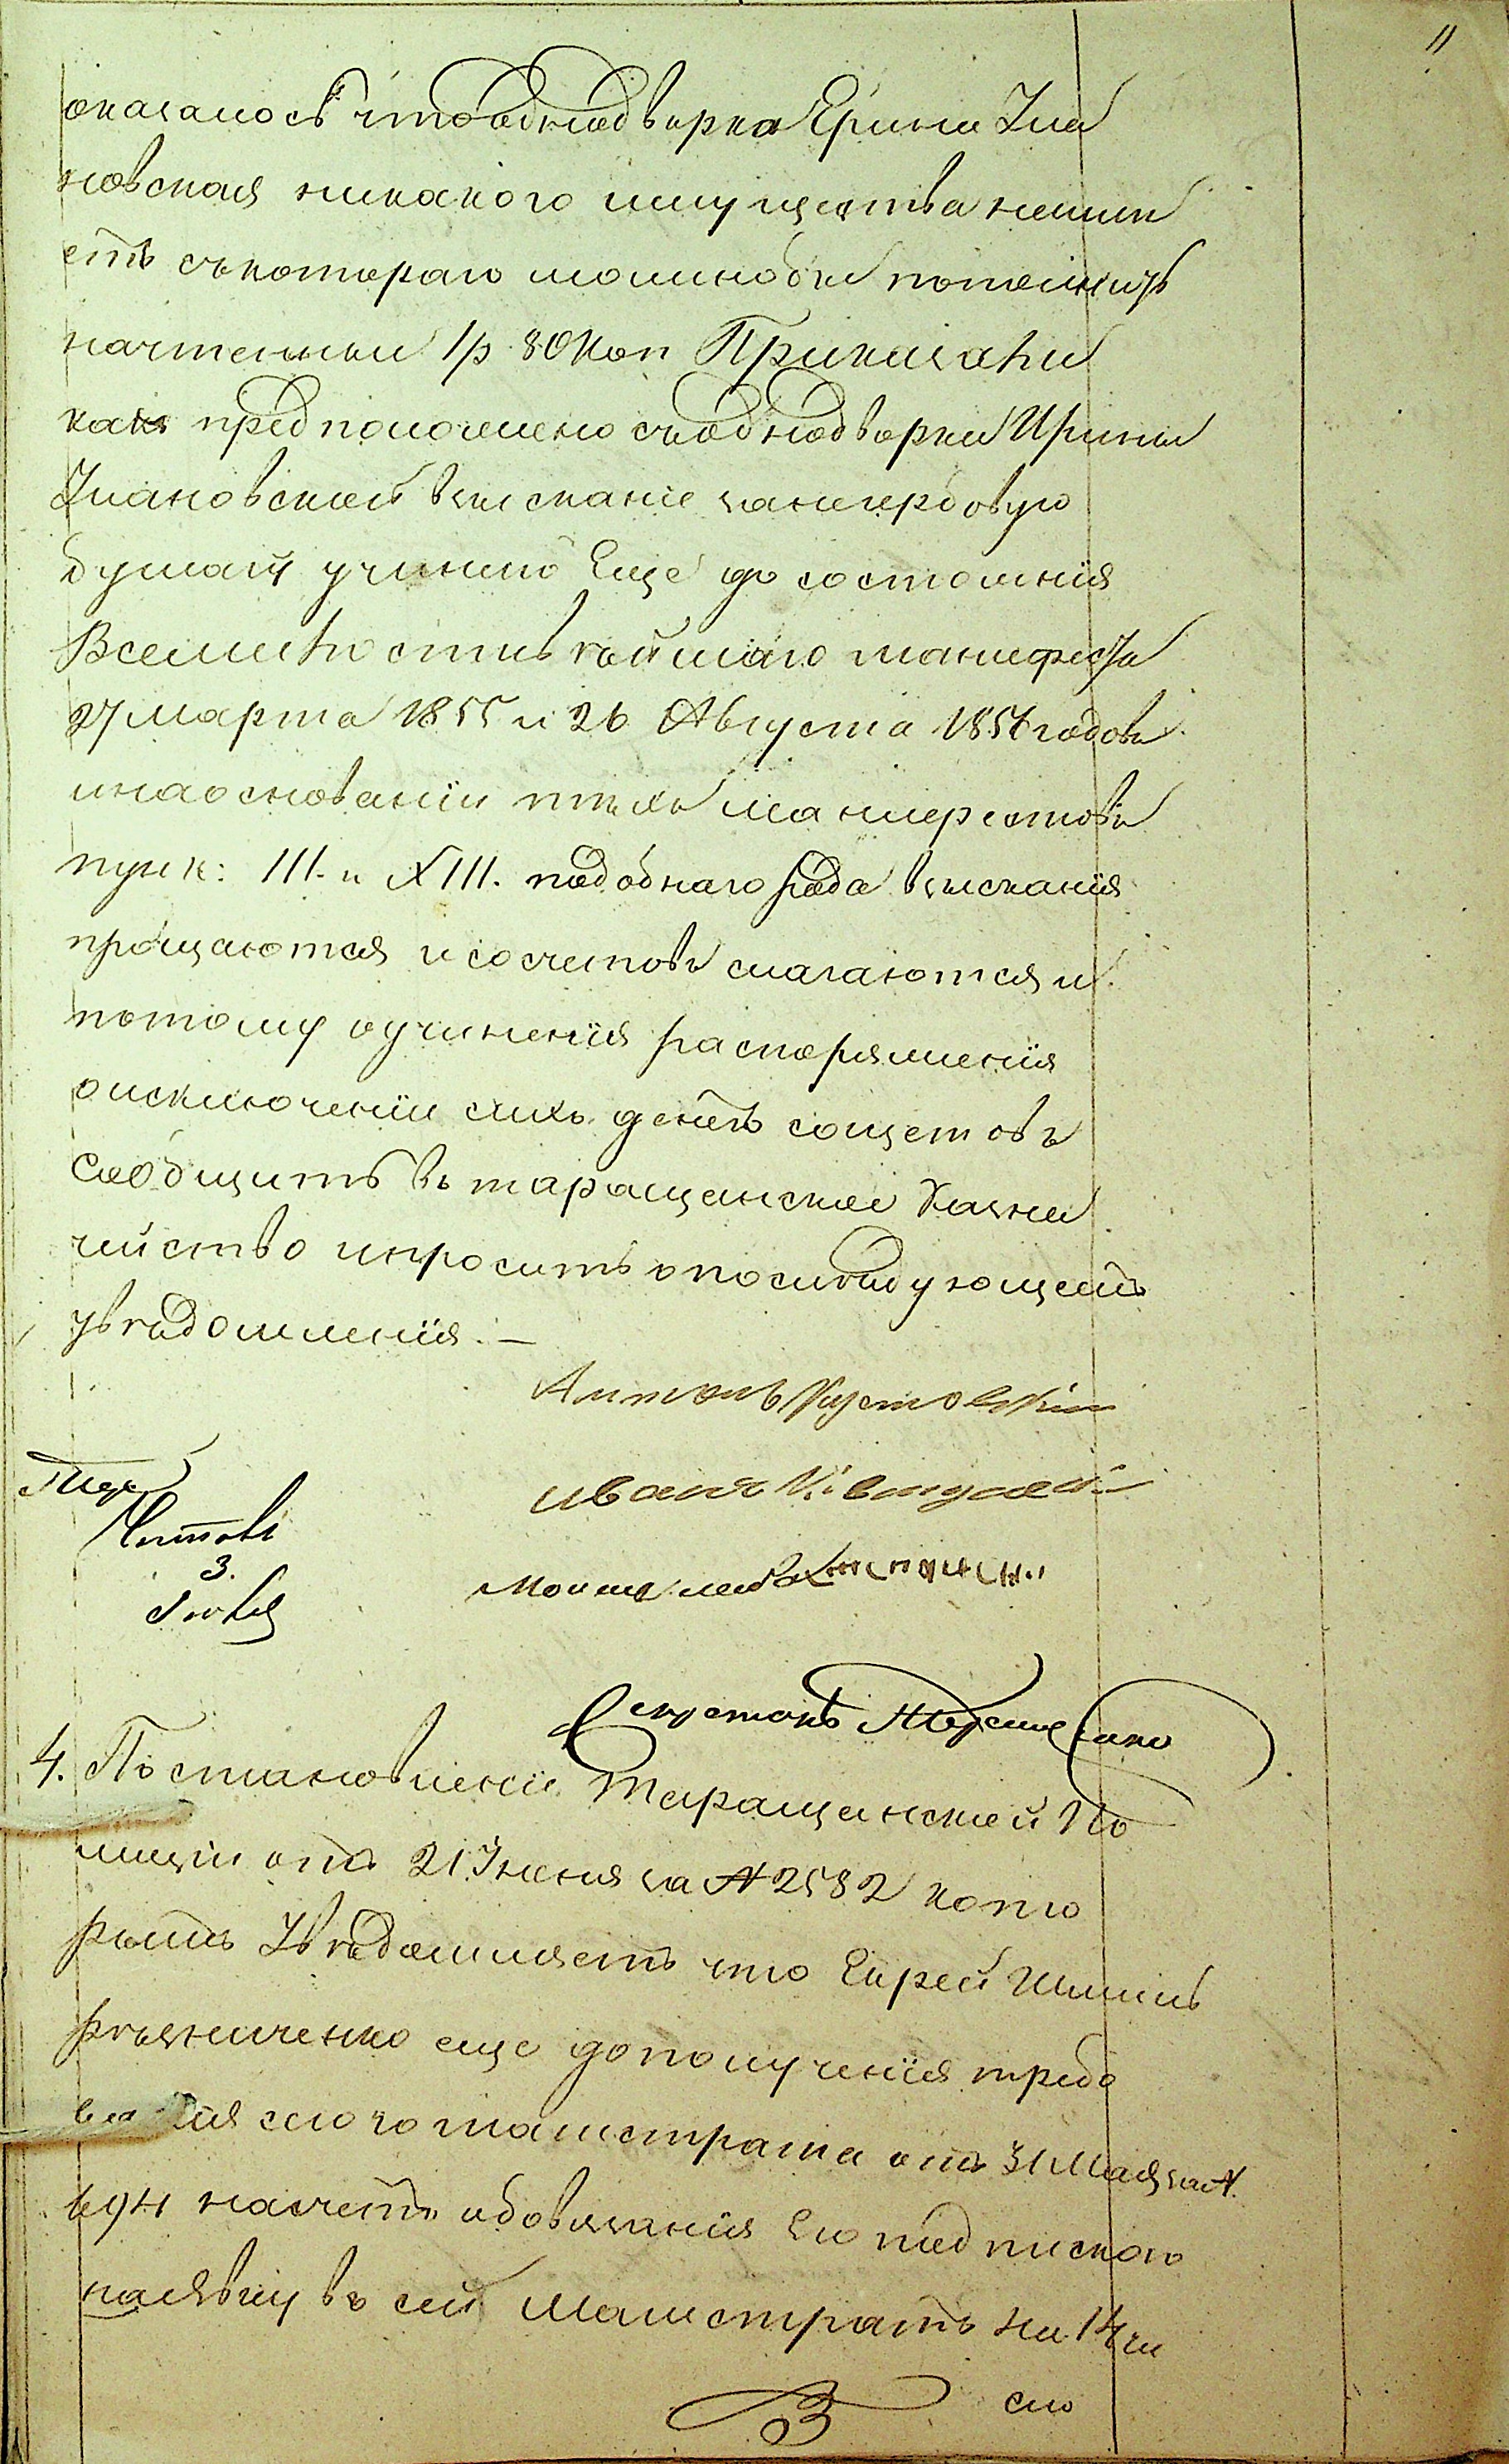 11
оказалось что однодворка Ерина Ула
новская никакого имущества неиме
етъ съкотораго моглибы пополнить
начтенныи 1р 80 коп Приказали
какъ предположено съоднодворки Ирины
Улановской взысканіе занегербовую
бумагу учинено Еще до состоянія
Всемилостивѣйшаго манифеста
27 марта 1855 и 26 Августа 1856 годовъ
инаосновании тѣхъ манифестовъ
пунк: III. и XIII. подобнаго рода взысканія
прощаются исосчетовъ слагаются и
потому оучиненія распоряженія
оисключеніи сихъ денегъ сощетовъ
сообщить въ таращанское Казна
чейство ипросить опослѣдующемъ
увѣдомленія. —
Антонъ
Иванъ
Читалъ
3.
Секретарь
4. Постановленіе Таращанской По
лиціи отъ 21 Іюня за № 2582 кото
рымъ Увѣдомляетъ что Еврей
еще дополученія требо
ванія сего магистрата отъ 31 Мая за №
1694 насчетъ обовязанія Его подпискою
наявку въ сей Магистратъ на 14 чи
сло